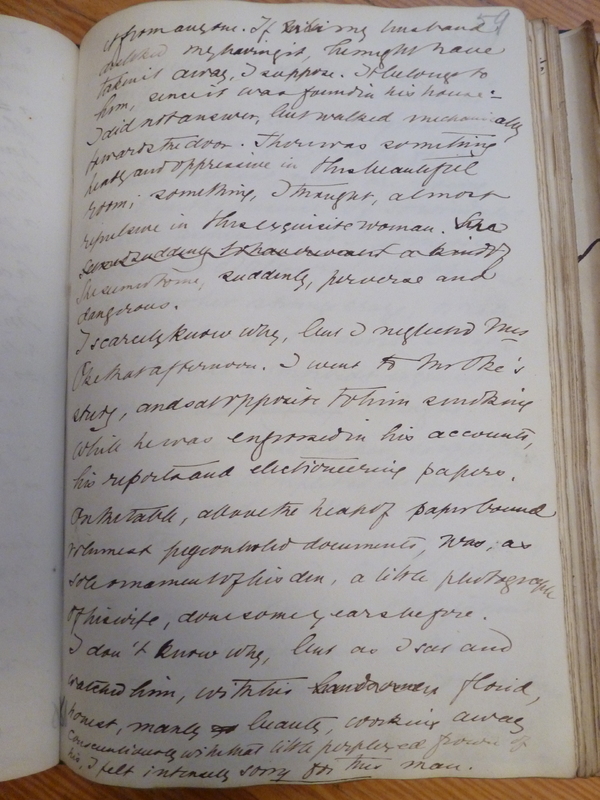 59
it from anyone. If my husband
disliked my having it, he might have
taken it away, I suppose. It belongs to
him, since it was found in his house.
I did not answer, but walked mechanically
towards the door. There was something
heady and oppressive in this beautiful
room; something, I thought, almost
repulsive in this exquisite woman. She
seemed suddenly to have a kind of
She seemed to me, suddenly, perverse and
dangerous.
I scarcely know why, but I neglected Mrs
Oke that afternoon. I went to Mr Oke's
study, and sat opposite to him smoking
while he was engrossed in his accounts,
his reports and electioneering papers.
On the table, above the heap of paper bound
volumes & pigeonholed documents, was, as
sole ornament of his den, a little photograph
of his wife, done some years before.
I don't know why, but as I sat and
watched him, with his florid,
honest, manly beauty, working away
conscientiously with that little perplexed frown of
his, I felt intensely sorry for this man.